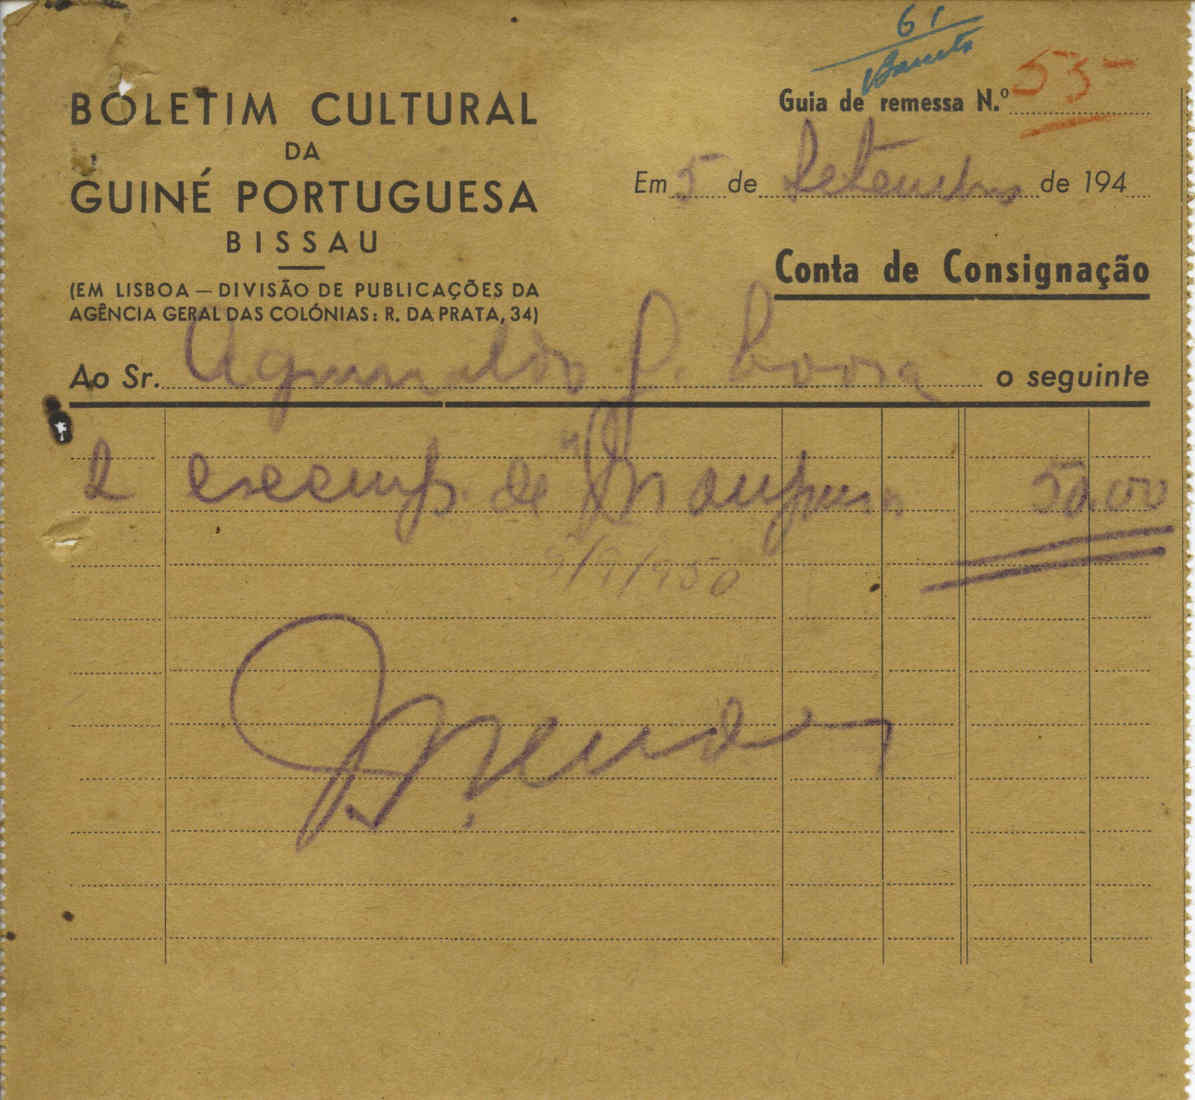 61
BOLETIM CULTURAL
DA
GUINÉ PORTUGUESA
BISSAU
(EM LISBOA — DIVISÃO DE PUBLICAÇÕES DA
AGÊNCIA GERAL DAS COLÓNIAS: R. DA PRATA, 34)
Guia de remessa N.º 53-
Em 5 de Setembro de 194
Conta de Consignação
Ao Sr. Aguinaldo o seguinte
2 exemp. de 50,00
9/9/950
Mendes